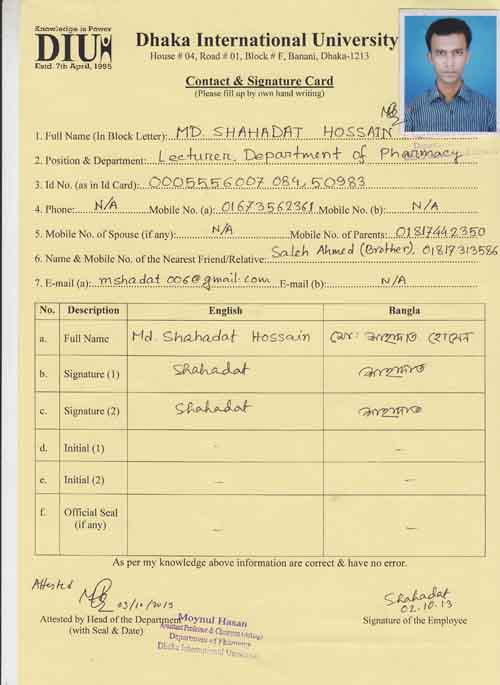 Knowledge is Power
DIU
Estd. 7th April, 1995
Dhaka International University
House # 04, Road # 01, Block # F, Banani, Dhaka-1213
Contact & Signature Card
(Please fill up by own hand writing)
1. Full Name (In Block Letter): MD. SHAHADAT HOSSAIN
2. Position & Department: Lecturer, Department of Pharmacy
3. Id No. (as in Id Card): 0005556007 084, 50983
4. Phone: N/A Mobile No. (a): 01673562361 Mobile No. (b): N/A
5. Mobile No. of Spouse (if any): N/A Mobile No. of Parents: 01817442350
6. Name & Mobile No. of the Nearest Friend/Relative: Saleh Ahmed (Brother), 01817313586
7. E-mail (a): mshadat006@gmail.com E-mail (b): N/A
No. Description English Bangla
a. Full Name Md. Shahadat Hossain মোঃ শাহাদাত হোসেন
b. Signature (1) Shahadat শাহাদাত
c. Signature (2) Shahadat শাহাদাত
d. Initial (1) – –
e. Initial (2) – –
f. Official Seal – –
(if any)
As per my knowledge above information are correct & have no error.
Attested
03/10/2013
Shahadat
02.10.13
Attested by Head of the Department
(with Seal & Date)
Moynul Hasan
Assistant Professor & Chairman (Acting)
Department of Pharmacy
Dhaka International University
Signature of the Employee